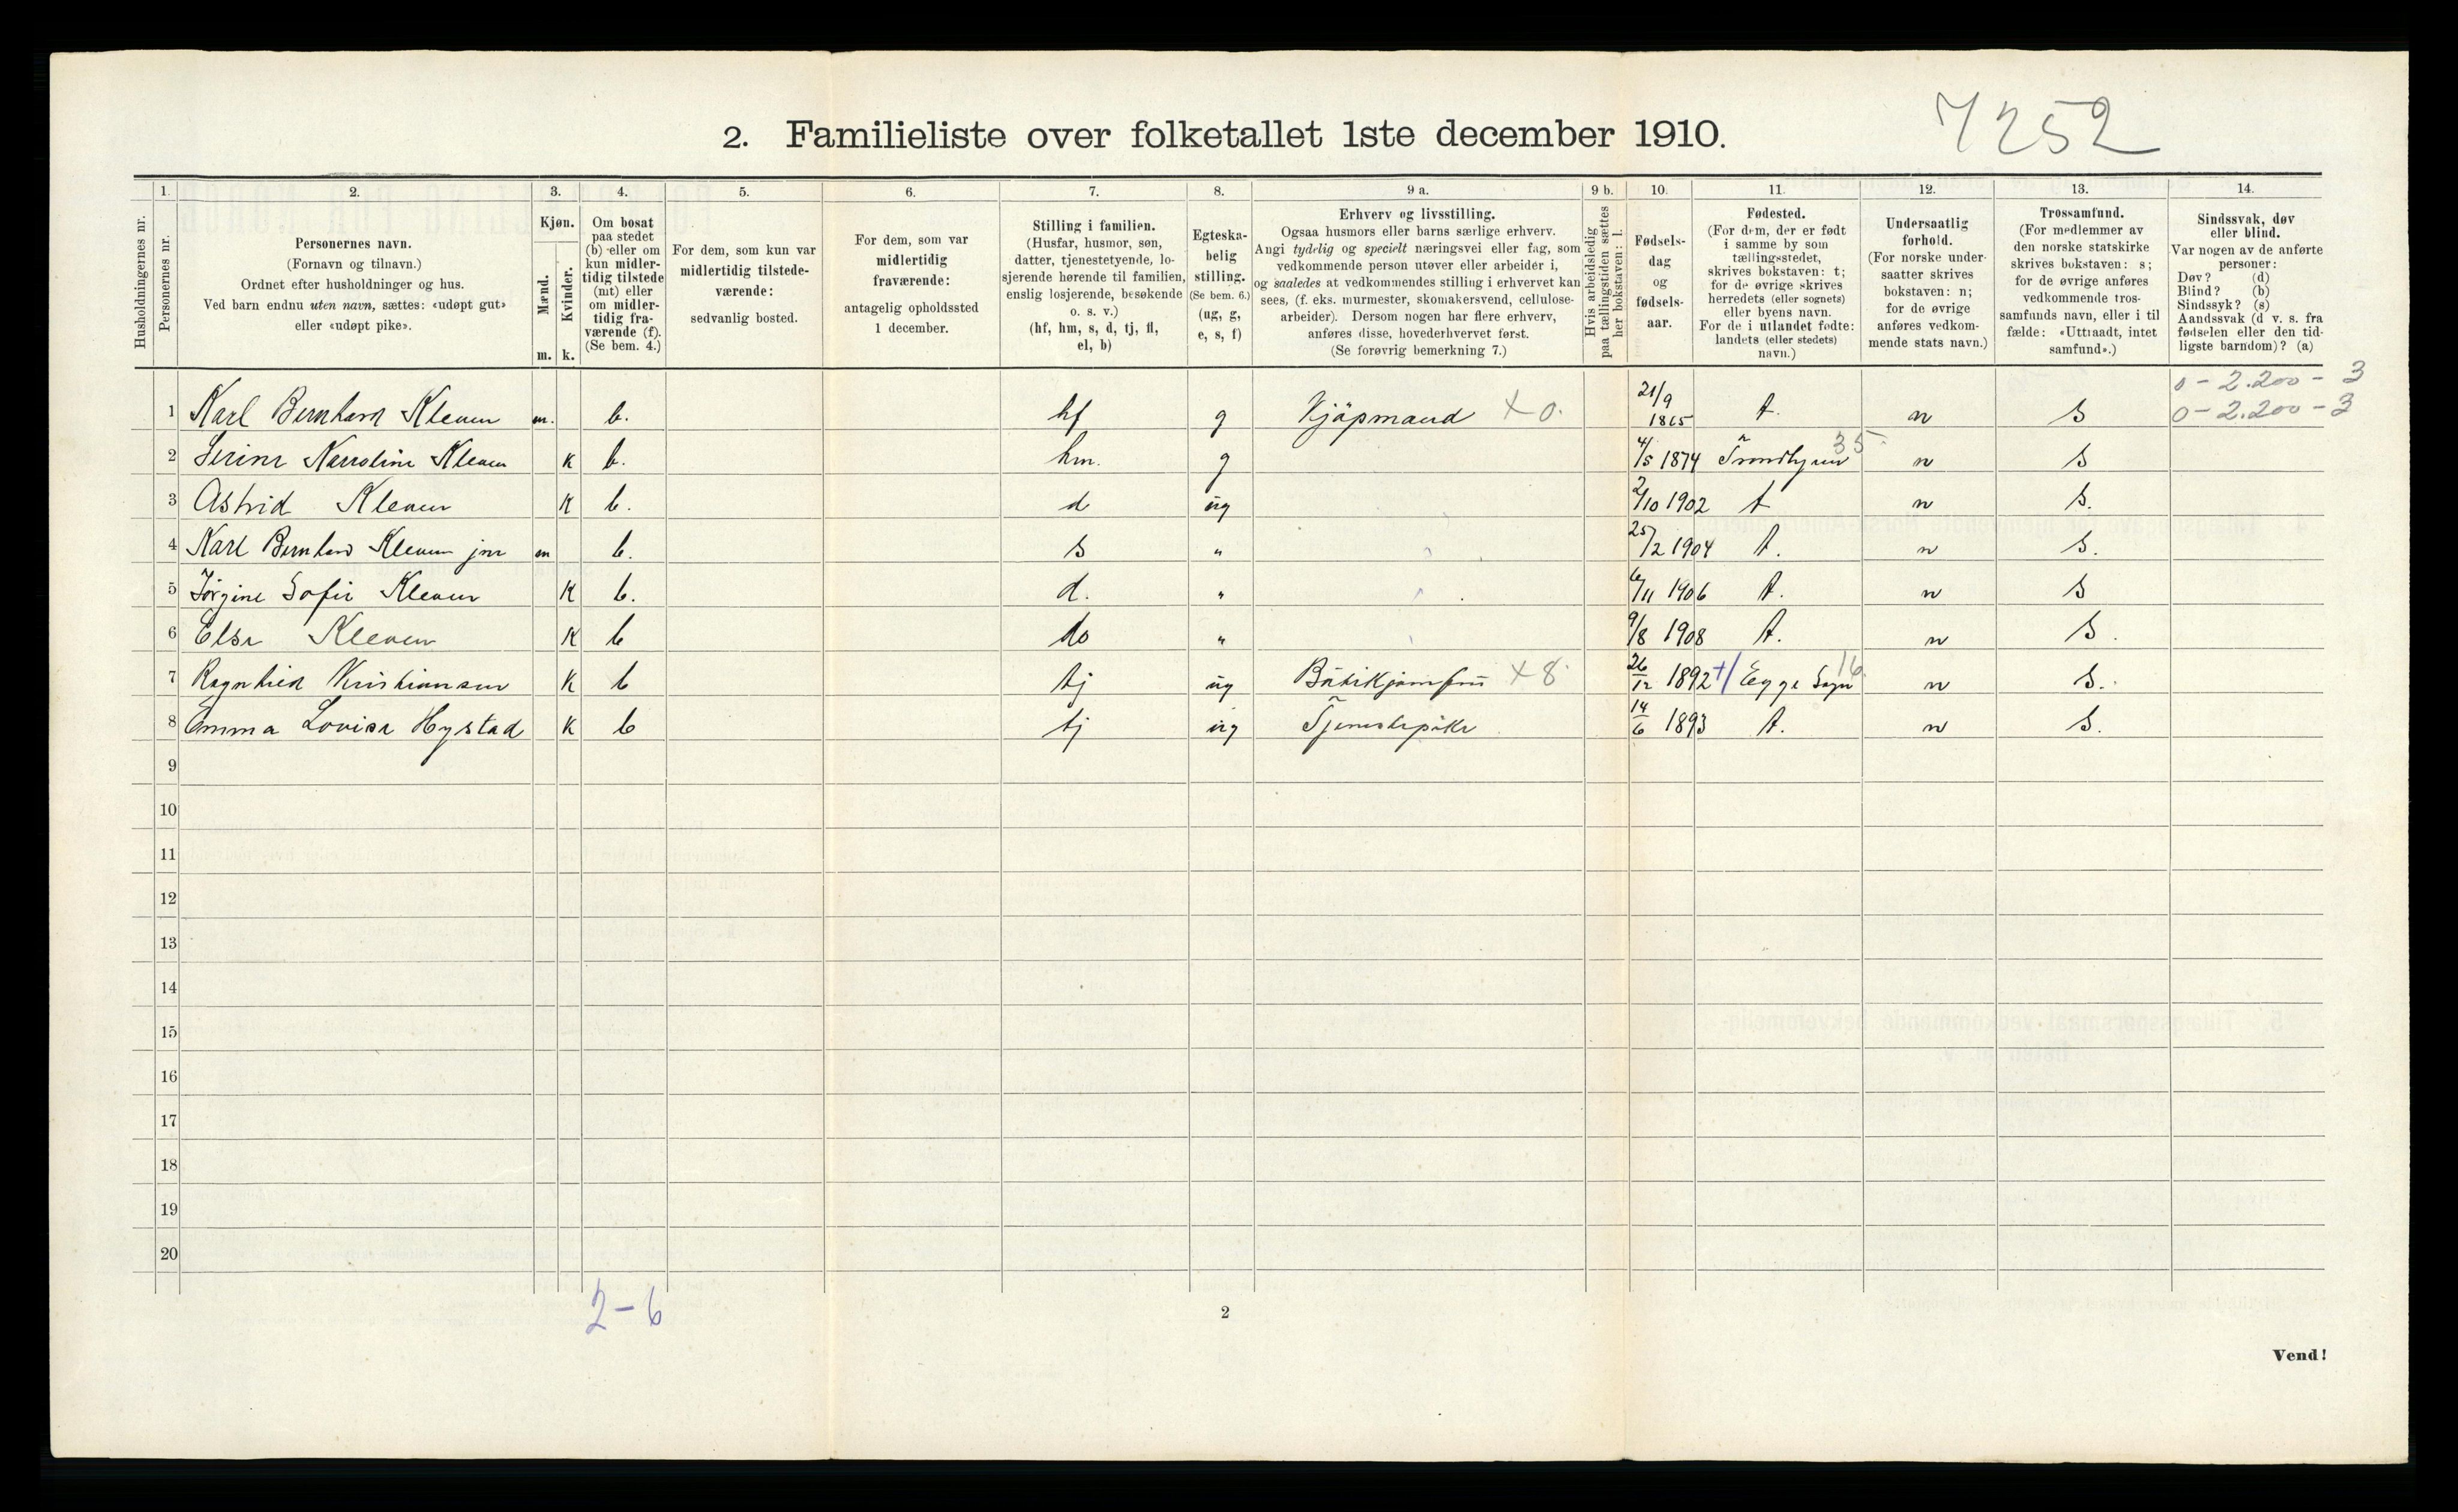 7252
2. Familieliste over folketallet 1ste december 1910.
Husholdningernes nr.
1. Personernes nr.
2. Personernes navn.
(Fornavn og tilnavn.)
Ordnet efter husholdninger og hus.
Ved barn endnu uten navn, sættes: «udøpt gut»
eller «udøpt pike».
3. Kjøn.
Mænd. m.
Kvinder. k.
4. Om bosat
paa stedet
(b) eller om
kun midler-
tidig tilstede
(mt) eller
om midler-
tidig fra-
værende (f).
(Se bem. 4.)
5. For dem, som kun var
midlertidig tilstede-
værende:
sedvanlig bosted.
6. For dem, som var
midlertidig
fraværende:
antagelig opholdssted
1 december.
7. Stilling i familien.
(Husfar, husmor, søn,
datter, tjenestetyende, lo-
sjerende hørende til familien,
enslig losjerende, besøkende
o. s. v.)
(hf, hm, s, d, tj, fl,
el, b)
8. Egteska-
belig
stilling.
(Se bem. 6.)
(ug, g,
e, s, f)
9 a. Erhverv og livsstilling.
Ogsaa husmors eller barns særlige erhverv.
Angi tydelig og specielt næringsvei eller fag, som
vedkommende person utøver eller arbeider i,
og saaledes at vedkommendes stilling i erhvervet kan
sees, (f. eks. murmester, skomakersvend, cellulose-
arbeider). Dersom nogen har flere erhverv,
anføres disse, hovederhvervet først.
(Se forøvrig bemerkning 7.)
9 b. Hvis arbeidsledig
paa tællingstiden sættes
her bokstaven: l.
10. Fødsels-
dag
og
fødsels-
aar.
11. Fødested.
(For dem, der er født
i samme by som
tællingsstedet,
skrives bokstaven: t;
for de øvrige skrives
herredets (eller sognets)
eller byens navn.
For de i utlandet fødte:
landets (eller stedets)
navn.)
12. Undersaatlig
forhold.
(For norske under-
saatter skrives
bokstaven: n;
for de øvrige
anføres vedkom-
mende stats navn.)
13. Trossamfund.
(For medlemmer av
den norske statskirke
skrives bokstaven: s;
for de øvrige anføres
vedkommende tros-
samfunds navn, eller i til
fælde: «Uttraadt, intet
samfund».)
14. Sindssvak, døv
eller blind.
Var nogen av de anførte
personer:
Døv? (d)
Blind? (b)
Sindssyk? (s)
Aandssvak (d v. s. fra
fødselen eller den tid-
ligste barndom)? (a)
0 - 2.200 - 3
1 Karl Bernhard Kleven m. b. hf g Kjöpmand + 0. 21/9 1865 t. n s 0 - 2.200 - 3
2 Serine Karoline Kleven k b. hm. g 4/5 1874 Trondhjem 35 n s
3 Astrid Kleven k b. d ug 2/10 1902 t n s.
4 Karl Bernhard Kleven jnr m b. s " 25/2 1904 t. n s.
5 Jørgine Sofie Kleven k b. d. " 6/11 1906 t. n s
6 Else Kleven k b do " 9/8 1908 t. n s.
7 Ragnhild Kristiansen k b tj ug Butikjomfru + 8. 26/12 1892 +/ Egge Sogn 16 n s.
8 Emma Lovise Hystad k b tj ug Tjenestepike 14/6 1893 t. n s.
9
10
11
12
13
14
15
16
17
18
19
20
2-6
2
Vend!